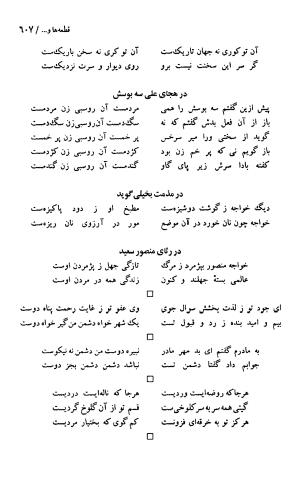 قطعه‌ها و... / ۶۰۷
آن تو کوری نه جهان تاریکست آن تو کری نه سخن باریکست
گر سر این سخنت نیست برو روی دیوار و سرت نزدیکست
در هجای علی سه بوسش
پیش ازین گفتم سه بوسش را همی مردمست آن روسبی زن مردمست
باز از آن فعل بدش گفتم که نه سگ‌دمست آن روسبی‌زن سگ‌دمست
گوید از سختی ورا میر سرخس پر خمست آن روسبی زن پر خمست
باز گویم نی که پر خم زن بود کژدمست آن روسبی زن کژدمست
کفته بادا سرش زیر پای گاو گندمست آن روسبی زن گندمست
در مذمت بخیلی گوید
دیگ خواجه ز گوشت دوشیزه‌ست مطبخ او ز دود پاکیزه‌ست
خواجه چون نان خورد در آن موضع مور در آرزوی نان ریزه‌ست
در رثای منصور سعید
خواجه منصور بپژمرد ز مرگ تازگی جهل ز پژمردن اوست
عالمی بستهٔ جهلند و کنون زندگی همه در مردن اوست
ای جود تو ز لذت بخشش سوال جوی وی عفو تو ز غایت رحمت پناه دوست
بیم و امید بنده ز رد و قبول تست یک شهر خواه دشمن من گیر خواه دوست
به مادرم گفتم ای بد مهر مادر نبیره دوست من دشمن نه نیکوست
جوابم داد گفتا دشمن تست نباشد دشمن دشمن بجز دوست
هرجا که روضه‌ایست وردیست هرجا که ناله‌ایست دردیست
گیتی همه سر به سر کلوخی‌ست قسم تو از آن کلوخ گردیست
هر کز تو به خرقه‌ای فزونست کم گوی که بختیار مردیست